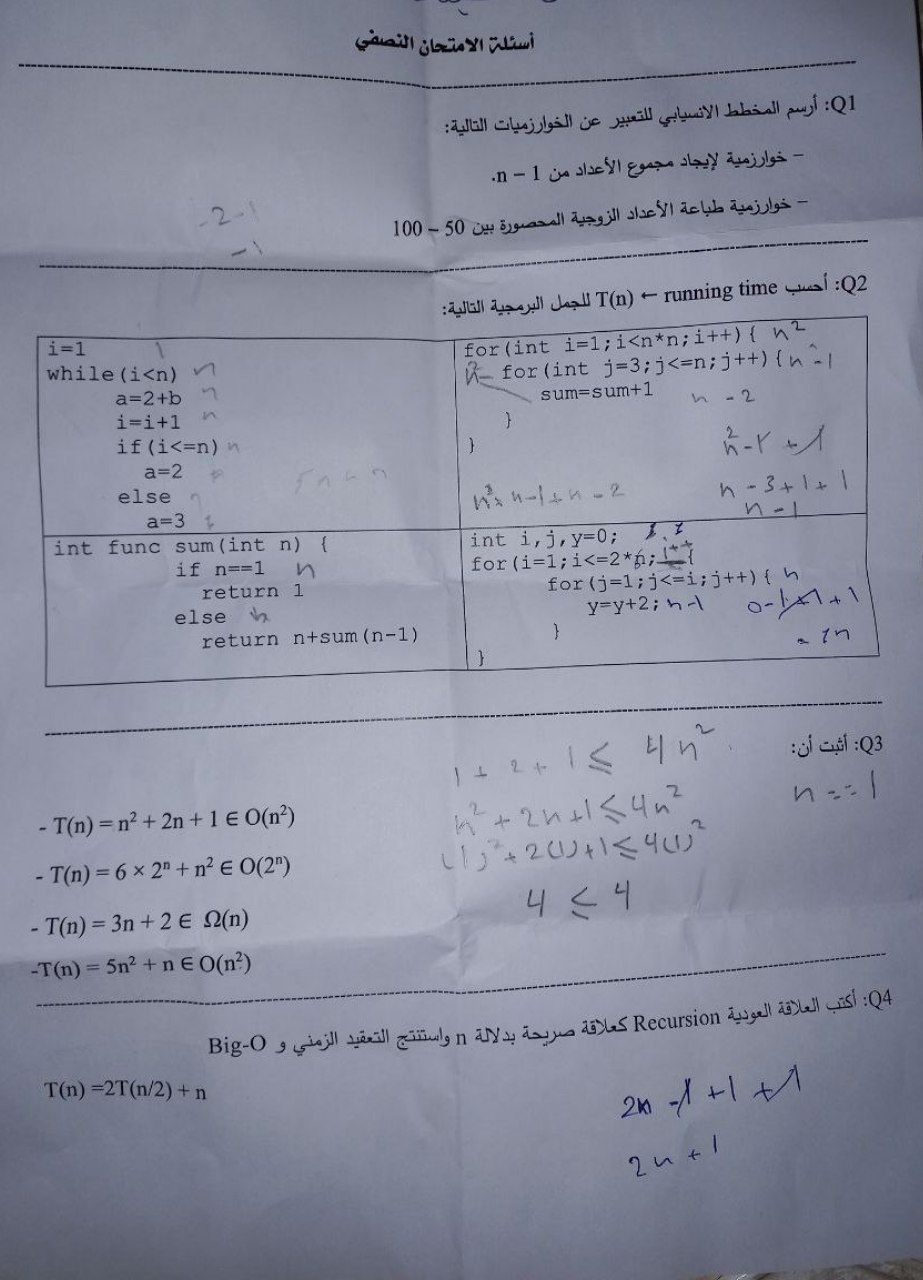 أسئلة الامتحان النصفي
Q1: أرسم المخطط الانسيابي للتعبير عن الخوارزميات التالية:
– خوارزمية لإيجاد مجموع الأعداد من 1 – n.
– خوارزمية طباعة الأعداد الزوجية المحصورة بين 50 – 100
-2-1
-1
Q2: أحسب T(n) ← running time للجمل البرمجية التالية:
i=1 1
while(i<n) n
a=2+b n
i=i+1 n
if(i<=n) n
a=2
else n
a=3
for(int i=1;i<n*n;i++){ n²
for(int j=3;j<=n;j++){ n-1
sum=sum+1 n-2
}
}
n²-1+1
n-3+1+1
n-1
n²×n-1+n-2
int func sum(int n) {
if n==1 n
return 1
else n
return n+sum(n-1)
int i,j,y=0;
for(i=1;i<=2*n;i++{
for(j=1;j<=i;j++){ n
y=y+2; n-1
}
}
Q3: أثبت أن:
1+2+1≤4n²
n==1
- T(n) = n² + 2n + 1 ∈ O(n²)
n²+2n+1≤4n²
- T(n) = 6 × 2ⁿ + n² ∈ O(2ⁿ)
(1)²+2(1)+1≤4(1)²
- T(n) = 3n + 2 ∈ Ω(n)
4≤4
-T(n) = 5n² + n ∈ O(n²)
Q4: أكتب العلاقة العودية Recursion كعلاقة صريحة بدلالة n واستنتج التعقيد الزمني و Big-O
T(n) =2T(n/2) + n
2n-1+1+1
2n+1